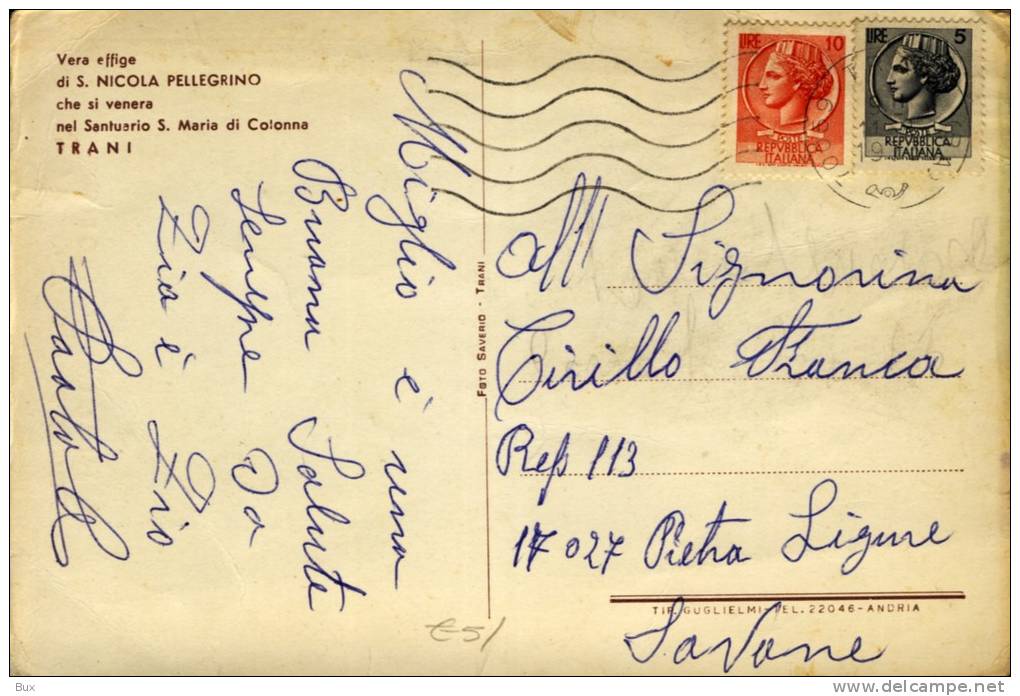 Vera effige
di S. NICOLA PELLEGRINO
che si venera
nel Santuario S. Maria di Colonna
TRANI
Miglio è una
Buona Salute
Sempre Da
Zia è Zio
Paolo
FOTO SAVERIO - TRANI
LIRE 10
POSTE
REPVBBLICA
ITALIANA
LIRE 5
POSTE
REPVBBLICA
ITALIANA
All Signorina
Cirillo Franca
Rep 113
17027 Pietra Ligure
Savone
TIP. GUGLIELMI - TEL. 22046 - ANDRIA
€5/
Bux
www.delcampe.net